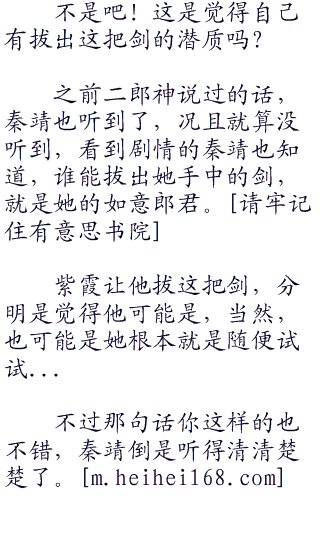 不是吧！这是觉得自己
有拔出这把剑的潜质吗？
之前二郎神说过的话，
秦靖也听到了，况且就算没
听到，看到剧情的秦靖也知
道，谁能拔出她手中的剑，
就是她的如意郎君。[请牢记
住有意思书院]
紫霞让他拔这把剑，分
明是觉得他可能是，当然，
也可能是她根本就是随便试
试...
不过那句话你这样的也
不错，秦靖倒是听得清清楚
楚了。[m.heihei168.com]